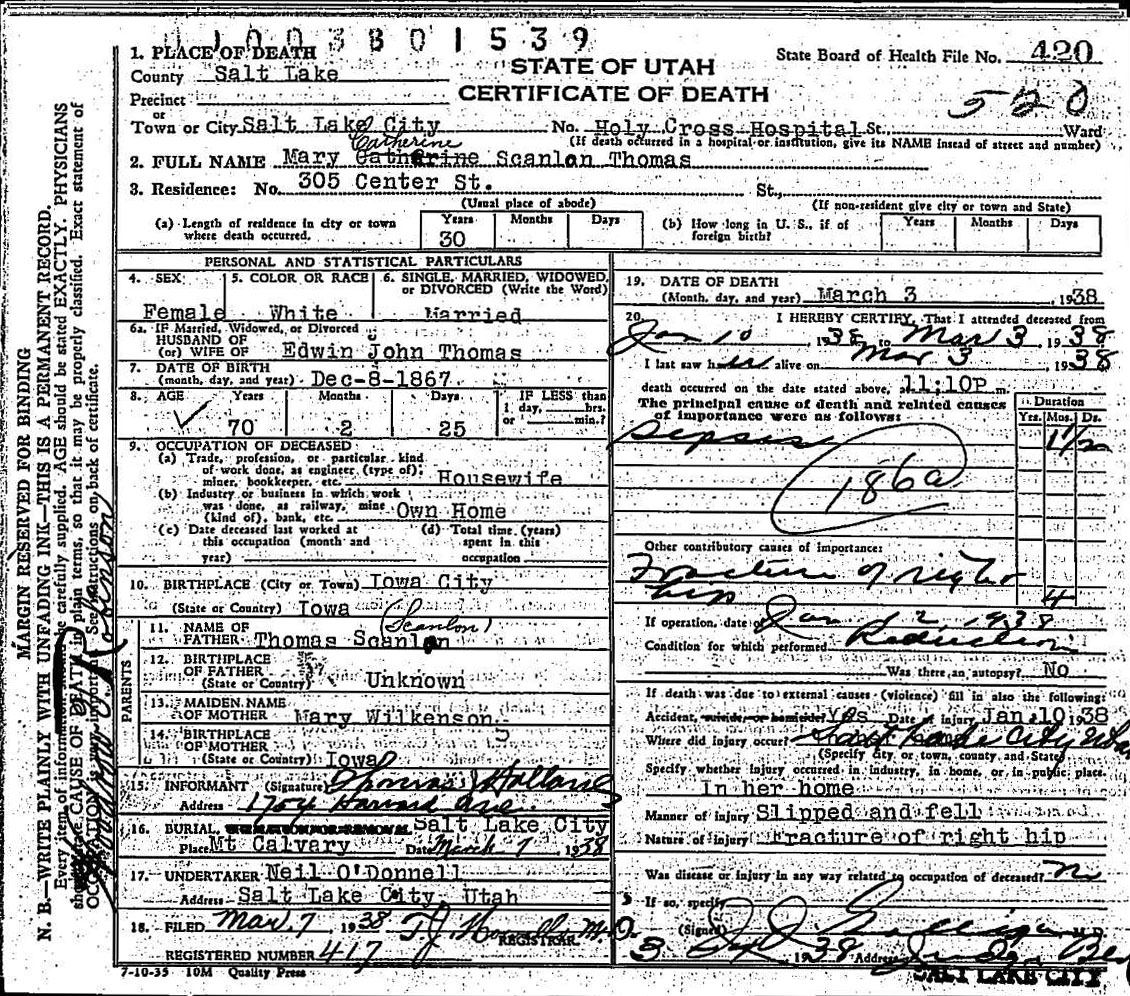 11003801539
1. PLACE OF DEATH
County Salt Lake
STATE OF UTAH
State Board of Health File No. 420
CERTIFICATE OF DEATH
520
Precinct
or
Town or City Salt Lake City No. Holy Cross Hospital St. Ward
(If death occurred in a hospital or institution, give its NAME instead of street and number)
Catherine
2. FULL NAME Mary Catherine Scanlon Thomas
3. Residence: No. 305 Center St. St.,
(Usual place of abode) (If non-resident give city or town and State)
(a) Length of residence in city or town where death occurred. Years 30 Months Days
(b) How long in U. S., if of foreign birth? Years Months Days
PERSONAL AND STATISTICAL PARTICULARS
4. SEX Female
5. COLOR OR RACE White
6. SINGLE, MARRIED, WIDOWED, or DIVORCED (Write the Word) Married
6a. IF Married, Widowed, or Divorced
HUSBAND OF
(or) WIFE OF Edwin John Thomas
7. DATE OF BIRTH
(month, day, and year) Dec-8-1867
8. AGE Years 70 Months 2 Days 25
IF LESS than
1 day, hrs.
or min.?
9. OCCUPATION OF DECEASED
(a) Trade, profession, or particular kind
of work done, as engineer (type of);
miner, bookkeeper, etc. Housewife
(b) Industry or business in which work
was done, as railway, mine
(kind of), bank, etc. Own Home
(c) Date deceased last worked at
this occupation (month and
year)
(d) Total time (years)
spent in this
occupation
10. BIRTHPLACE (City or Town) Iowa City
(State or Country) Iowa
PARENTS
(Scanlon)
11. NAME OF
FATHER Thomas Scanlon
12. BIRTHPLACE
OF FATHER
(State or Country) Unknown
13. MAIDEN NAME
OF MOTHER Mary Wilkenson
14. BIRTHPLACE
OF MOTHER
(State or Country) Iowa
15. INFORMANT (Signature) Thomas J Holland
Address 1704 Harvard Ave
16. BURIAL, CREMATION OR REMOVAL Salt Lake City
Place Mt Calvary Date March 7 1938
17. UNDERTAKER Neil O'Donnell
Address Salt Lake City, Utah
18. FILED Mar. 7 1938 M.D.
REGISTRAR
REGISTERED NUMBER 417
7-10-35 10M Quality Press
19. DATE OF DEATH
(Month, day, and year) March 3, 1938
20. I HEREBY CERTIFY, That I attended deceased from
Jan 10, 1938, to Mar 3, 1938
I last saw her alive on Mar 3, 1938
death occurred on the date stated above, 11:10P m.
The principal cause of death and related causes
of importance were as follows:
Duration
Yrs. Mos. Ds.
Sepsis 1 1/2
186a
Other contributory causes of importance:
Fracture of right
hip 4
If operation, date of Jan 12 1938
Condition for which performed Reduction
Was there an autopsy? No
If death was due to external causes (violence) fill in also the following:
Accident, suicide or homicide? Yes Date of injury Jan. 10 1938
Where did injury occur? Salt Lake City Utah
(Specify city or town, county and State)
Specify whether injury occurred in industry, in home, or in public place.
In her home
Manner of injury Slipped and fell
Nature of injury Fracture of right hip
Was disease or injury in any way related to occupation of deceased? No
If so, specify
(Signed) M.D.
1938 Address
SALT LAKE CITY
MARGIN RESERVED FOR BINDING
N. B.—WRITE PLAINLY WITH UNFADING INK—THIS IS A PERMANENT RECORD.
Every item of information be carefully supplied. AGE should be stated EXACTLY. PHYSICIANS
should state CAUSE OF DEATH in plain terms, so that it may be properly classified. Exact statement of
OCCUPATION is very important. See instructions on back of certificate.